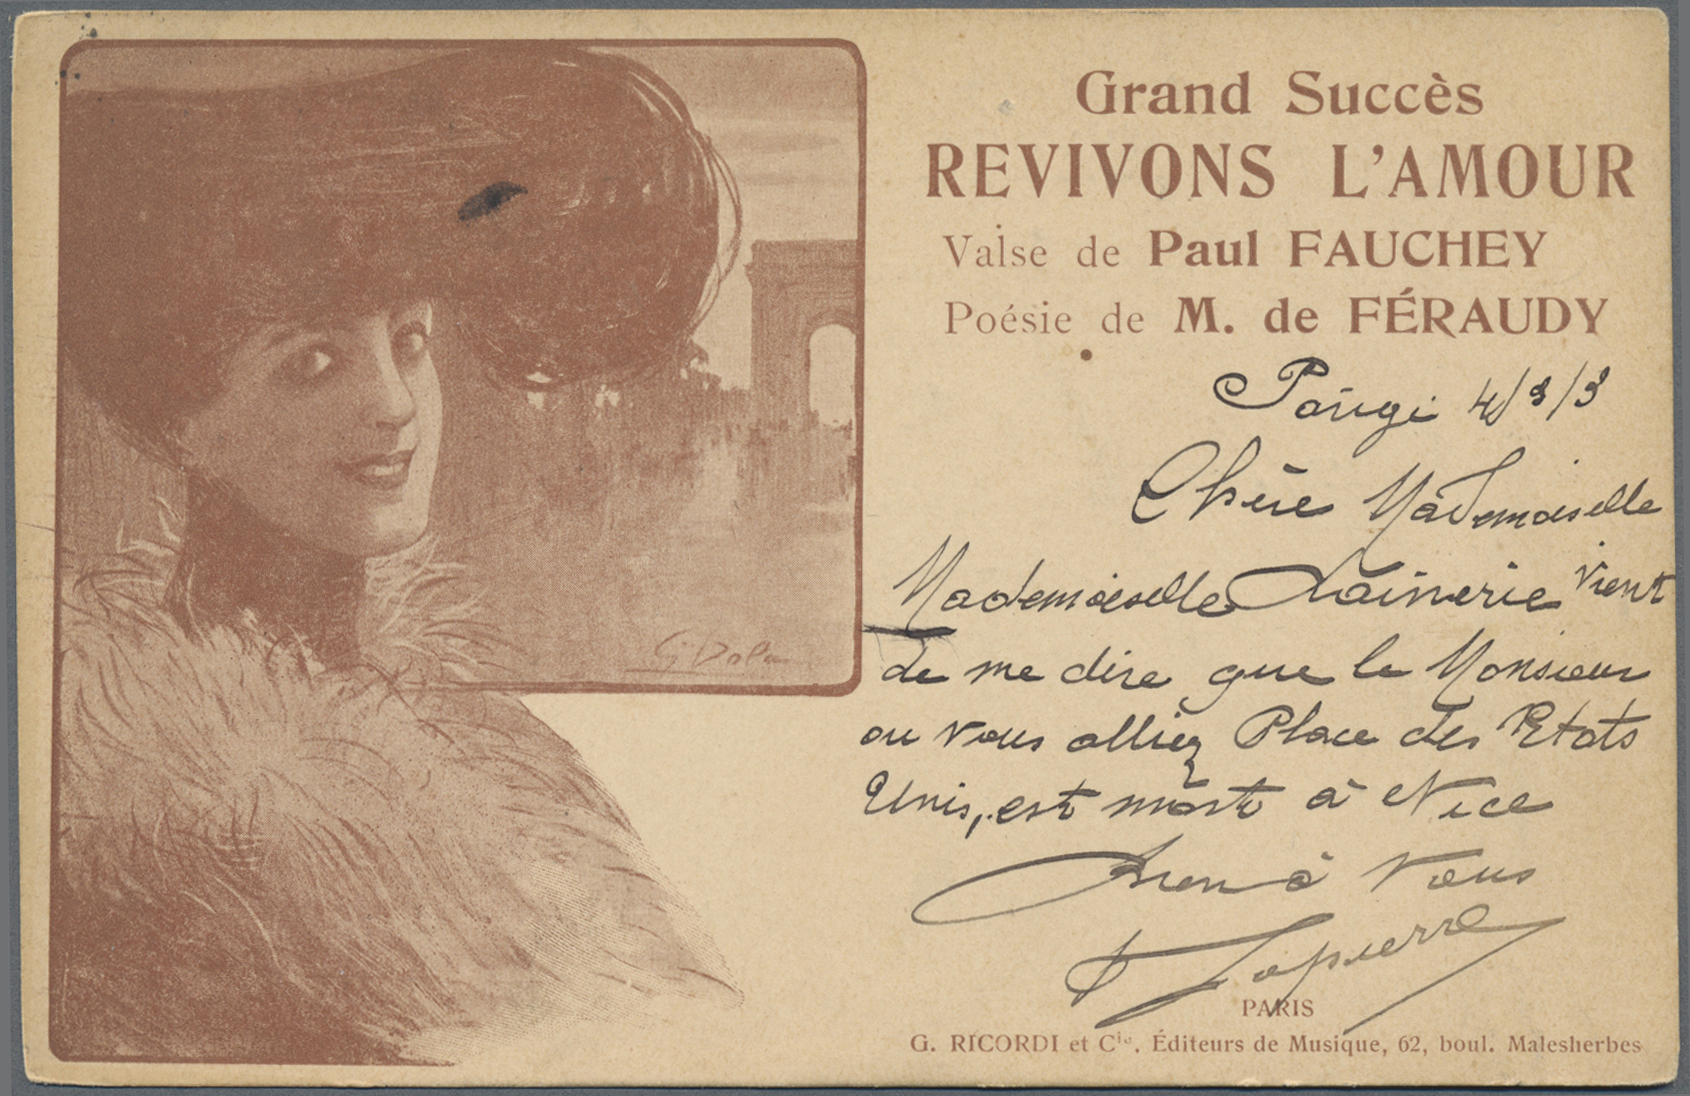 Grand Succès
REVIVONS L'AMOUR
Valse de Paul FAUCHEY
Poésie de M. de FÉRAUDY
4/3/3
Chère Mademoiselle
Mademoiselle Lainerie vient
de me dire que le Monsieur
ou vous alliez Place des Etats
Unis, est mort à Nice
bien à vous
Lapierre
G. Dola
PARIS
G. RICORDI et Cie. Éditeurs de Musique, 62, boul. Malesherbes